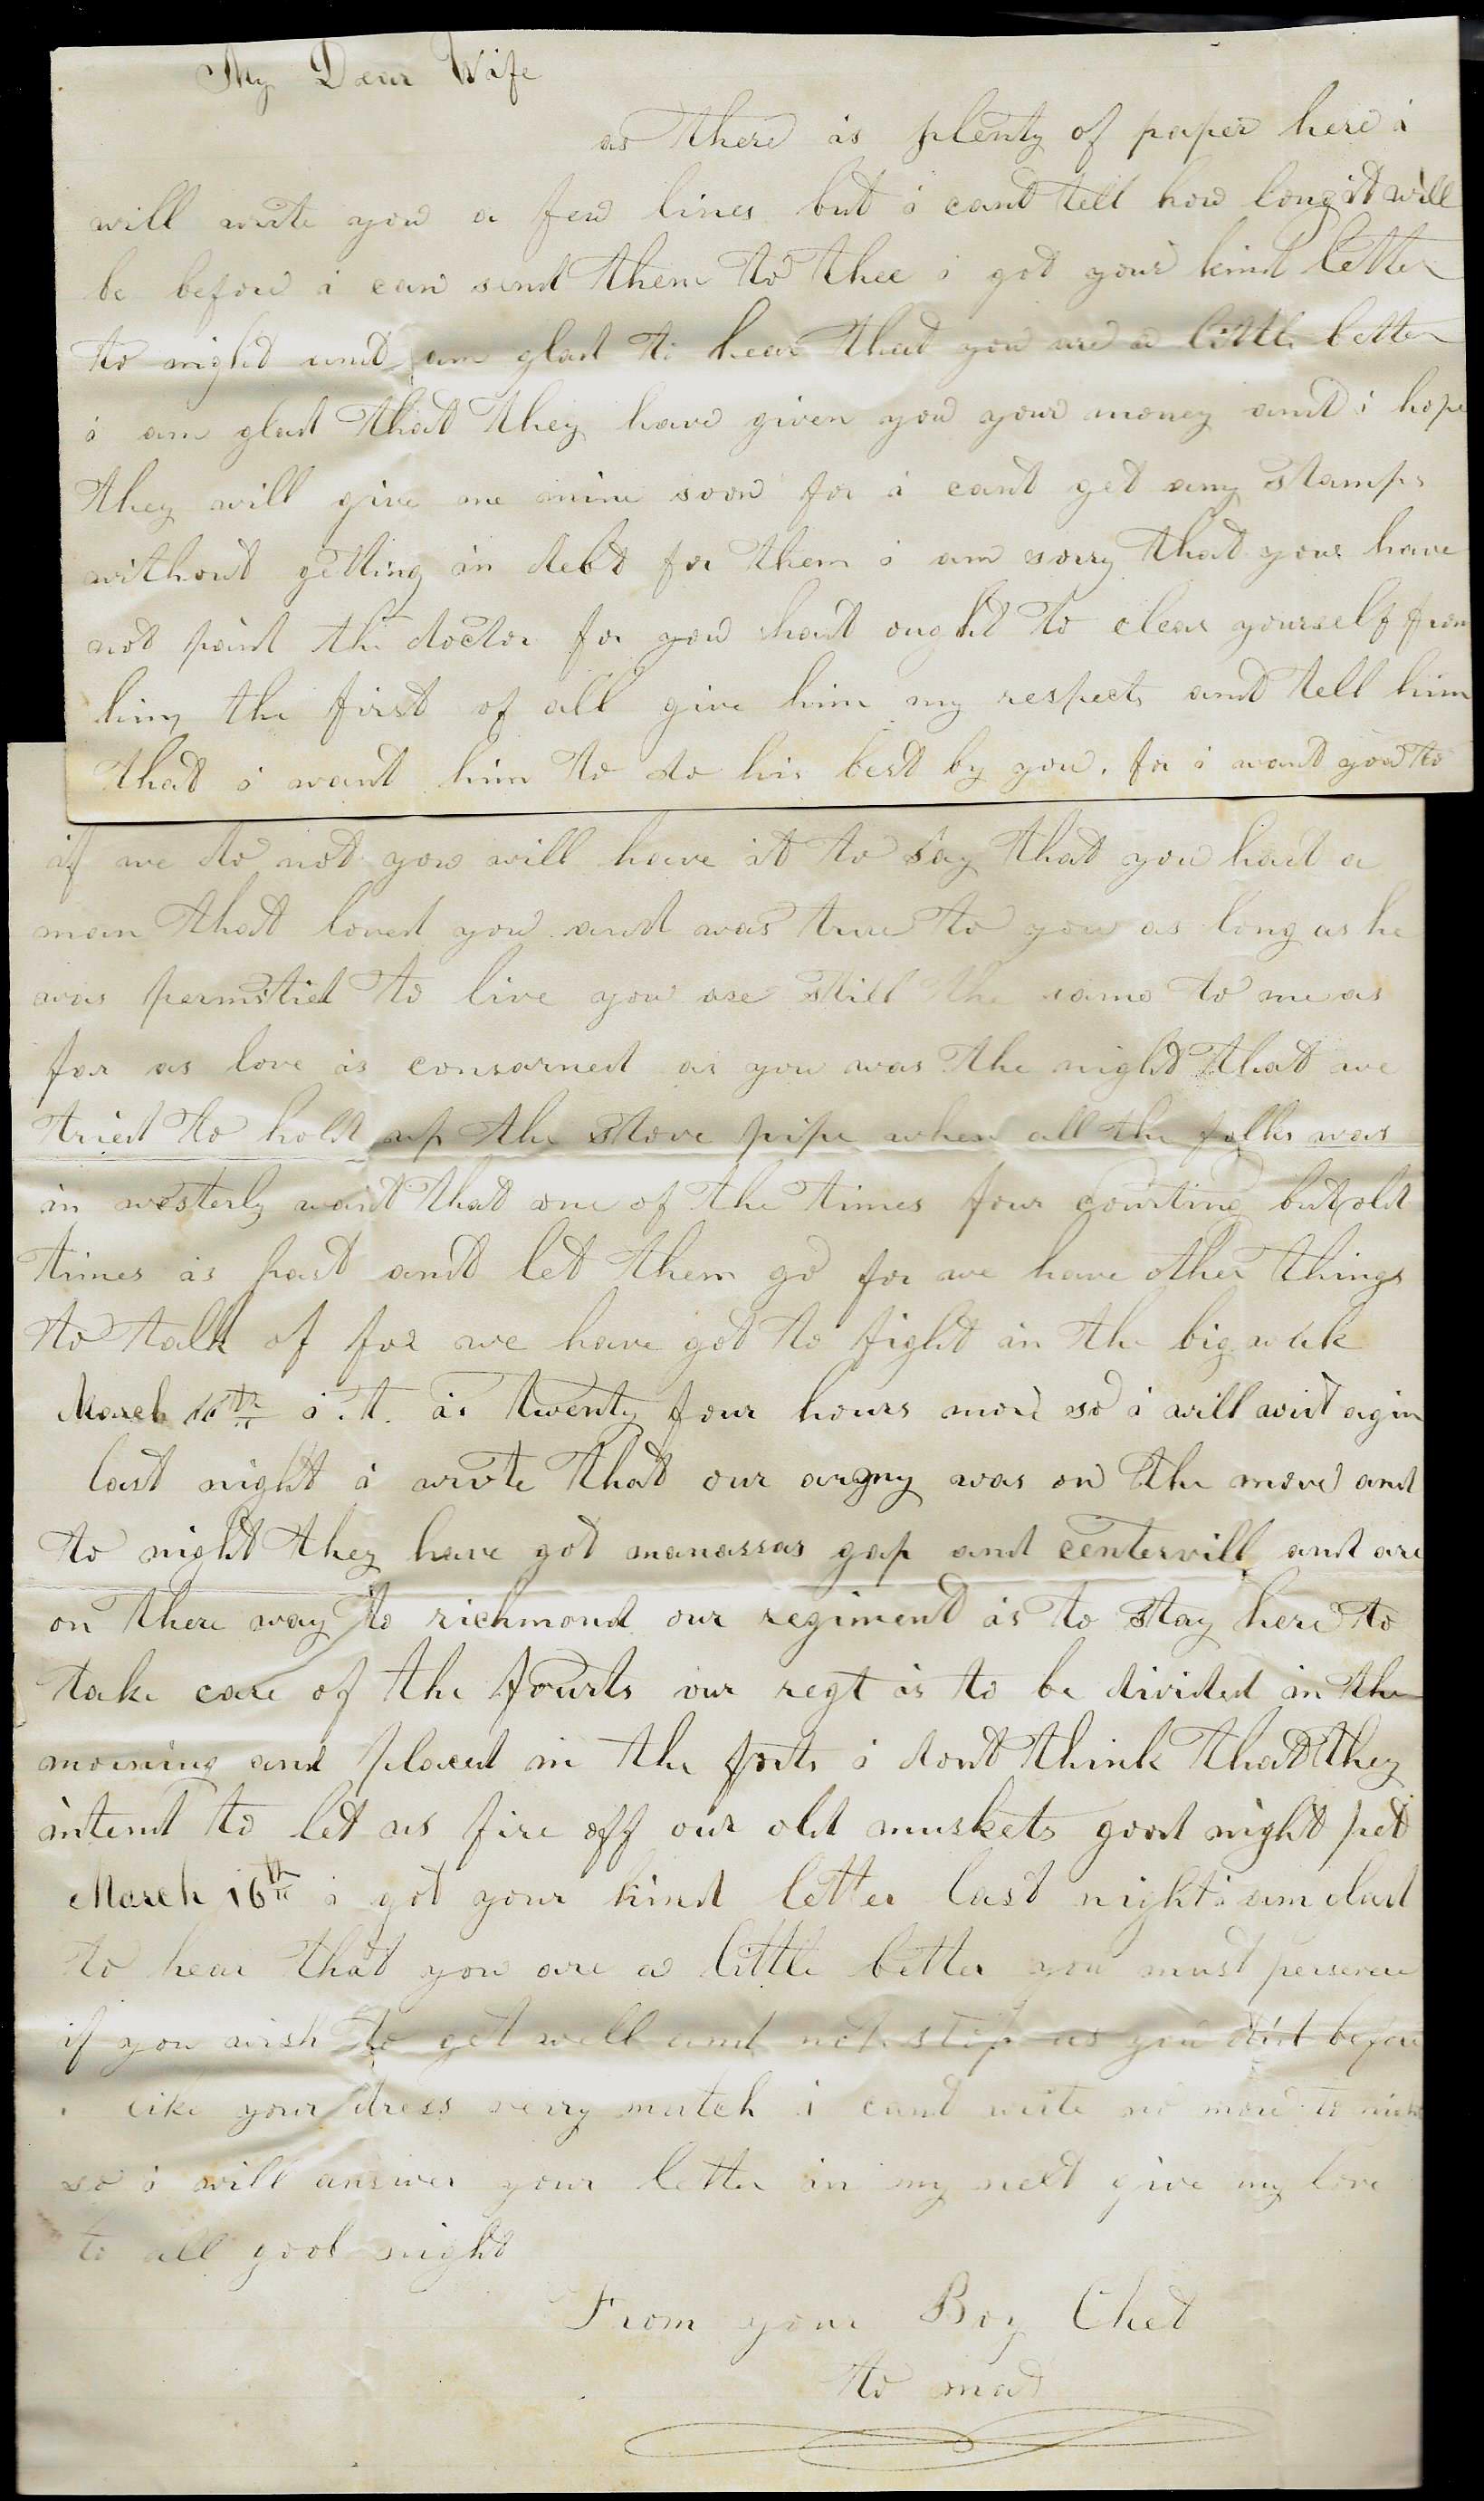 My Dear Wife
as there is plenty of paper here i
will write you a few lines but i cant tell how long it will
be before i can send them to thee i got your kind letter
to night and am glad to hear that you are a little better
i am glad that they have given you your money and i hope
they will give me mine soon for i cant get any stamps
without getting in debt for them i am sorry that you have
not paid the doctor for you had ought to clear yourself from
him the first of all give him my respects and tell him
that i want him to do his best by you. for i want you to
if we do not you will have it to say that you had a
man that loved you and was true to you as long as he
was permitied to live you are still the same to me as
far as love is consarned as you was the night that we
tried to hold up the stove pipe when all the folks was
in westerly want that one of the times four courting but old
times is past and let them go for we have other things
to talk of for we have got to fight in the big
March i.t. is twenty four hours more so i will agin
last night i wrote that our army was on the move and
to night they have got manassas gap and centervill and are
on there way to richmond our regiment is to stay here to
take care of the fourts our regt is to be divided in the
morning and placed in the forts i dont think that they
intend to let us fire off our old muskets good night pet
March 16th i got your kind letter last night i am glad
to hear that you are a little better you must persevere
if you wish to get well and not stop as you did before
i like your dress verry mutch i cant write no more to night
so i will answer your letter in my next give my love
to all good night
From your Boy Chet
to mat